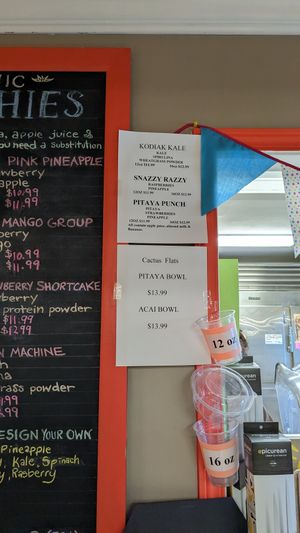 NIC
HIES
a, apple juice &
you need a substitution
PINK PINEAPPLE
wberry
apple
$10.99
$11.99
MANGO GROUP
berry
go
$10.99
$11.99
BERRY SHORTCAKE
berry
protein powder
$11.99
$12.99
N MACHINE
ch
na
grass powder
.99
.99
ESIGN YOUR OWN
Pineapple
y, Kale, Spinach
y, Rasberry
KODIAK KALE
KALE
SPIRULINA
WHEATGRASS POWDER
SNAZZY RAZZY
RASPBERRIES
PINEAPPLE
12OZ $11.99 16OZ $12.99
PITAYA PUNCH
PITAYA
STRAWBERRIES
PINEAPPLE
12OZ $11.99 16OZ $12.99
All contain apple juice, almond milk &
Bananas.
Cactus Flats
PITAYA BOWL
$13.99
ACAI BOWL
$13.99
12 oz
16 oz
epicurean